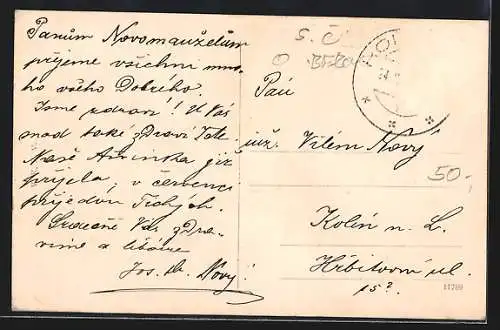 Panům Novomanželům
přejeme všichni mno-
ho všeho Dobrého.
Jsme zdraví! U Vás
snad také zdraví
Naše Aninka již
přijela, v červenci
přijedou
Srdečně Vás zdra-
víme a líbáme
Jos. Nový!
S. Č.
Pán
inž. Vilém Nový
50,-
Kolín n. L.
Hřbitovní ul.
15?
11789